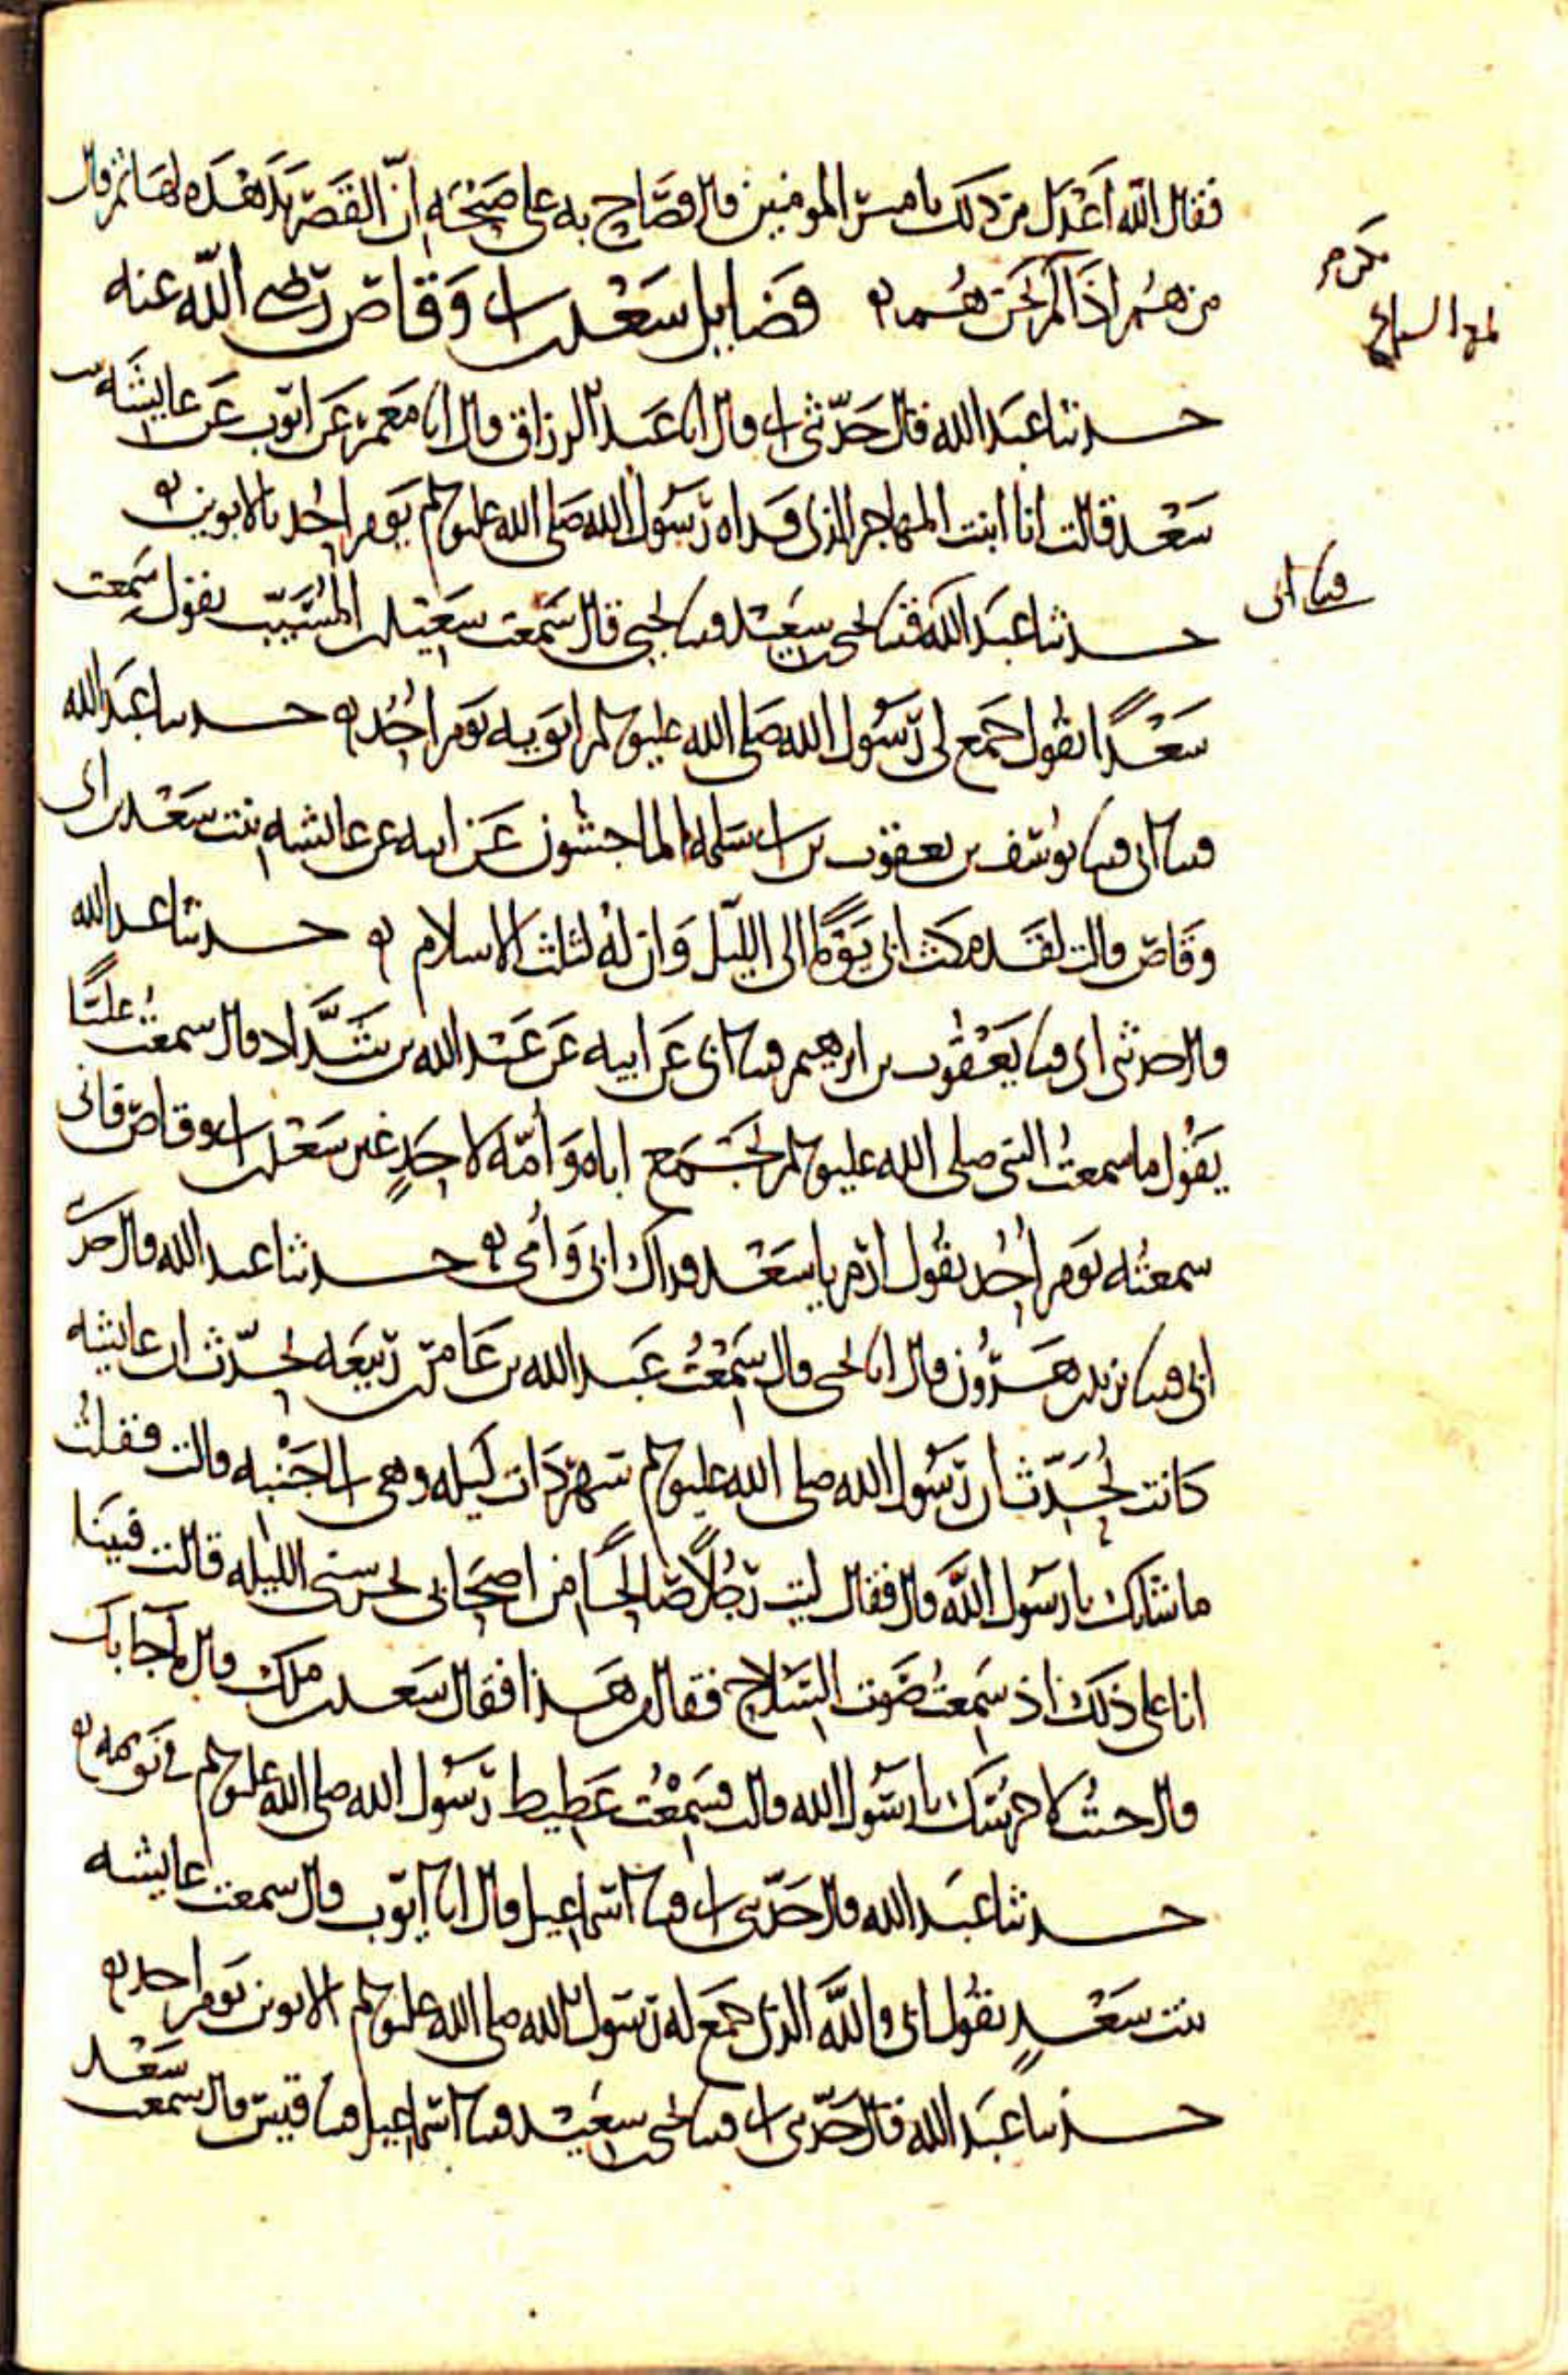 فقال الله اعدل من ذلك يا امير المومنين قال فصاح به علي صيحة ان القصر يدهده لها ثم قال
من هم اذا لم نكن نحن هم
فضايل سعد بن ابي وقاص رضي الله عنه
حدثنا عبد الله قال حدثني ابي قال انا عبد الرزاق قال انا معمر عن ايوب عن عايشة بنت
سعد قالت انا ابنت المهاجر الذي فداه رسول الله صلى الله عليه وسلم يوم احد بالابوين
حدثنا عبد الله قثنا يحيى بن سعيد قثنا يحيى قال سمعت سعيد بن المسيب يقول سمعت
سعدًا يقول جمع لي رسول الله صلى الله عليه وسلم ابويه يوم احد حدثنا عبد الله
قثنا ابي قثنا يوسف بن يعقوب بن ابي سلمة الماجشون عن ابيه عن عايشه بنت سعد بن ابي
وقاص قالت لقد مكث ابي يومًا الى الليل وان له لثلث الاسلام حدثنا عبد الله
قال حدثني ابي قثنا يعقوب بن ابرهيم قثنا ابي عن ابيه عن عبد الله بن شداد قال سمعت عليًا
يقول ما سمعت النبي صلى الله عليه وسلم يجمع اباه وامه لاحدٍ غير سعد بن ابي وقاص فاني
سمعته يوم احد يقول ارم يا سعد فداك ابي وامي حدثنا عبد الله قال حدثني
ابي قثنا يزيد بن هرون قال انا يحيى قال سمعت عبد الله بن عامر بن ربيعه يحدث ان عايشه
كانت تحدث ان رسول الله صلى الله عليه وسلم سهر ذات ليله وهي الى جنبه قالت فقلت
ما شانك يا رسول الله قال فقال ليت رجلًا صالحًا من اصحابي يحرسني الليله قالت فبينا
انا على ذلك اذ سمعت صوت السلاح فقال من هذا فقال سعد بن ملك قال ما جا بك
قال جئت لاحرسك يا رسول الله قالت فسمعت غطيط رسول الله صلى الله عليه وسلم في نومه
حدثنا عبد الله قال حدثني ابي قثنا اسماعيل قال انا ايوب قال سمعت عايشه
بنت سعدٍ تقول ابي والله الذي جمع له رسول الله صلى الله عليه وسلم الابوين يوم احد
حدثنا عبد الله قال حدثني ابي قثنا يحيى بن سعيد قثنا اسماعيل قثنا قيس قال سمعت سعد
قثنا ابي